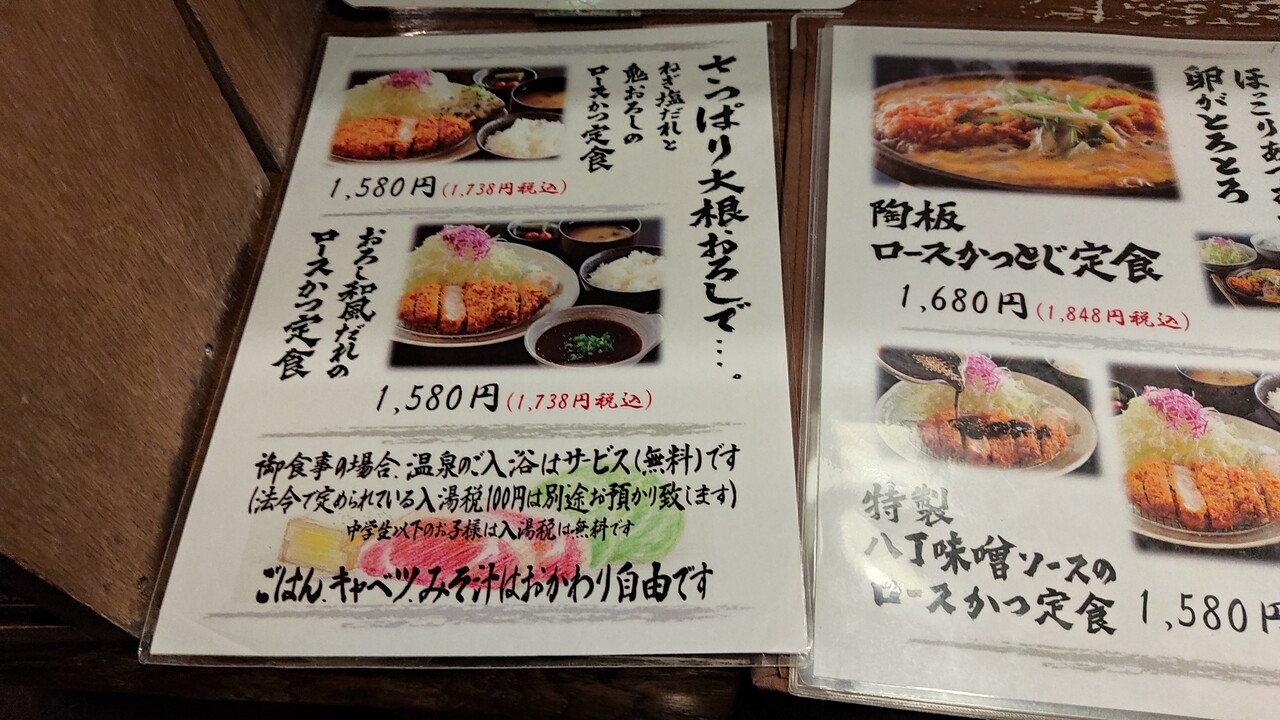 さっぱり大根おろしで…。
ねぎ塩だれと
鬼おろしの
ロースかつ定食
1,580円(1,738円税込)
おろし和風だれの
ロースかつ定食
1,580円(1,738円税込)
御食事の場合、温泉のご入浴はサービス(無料)です
(法令で定められている入湯税100円は別途お預かり致します)
中学生以下のお子様は入湯税は無料です
ごはん、キャベツ、みそ汁はおかわり自由です
ほっこりあつ
卵がとろとろ
陶板
ロースかつとじ定食
1,680円(1,848円税込)
特製
八丁味噌ソースの
ロースかつ定食
1,580円